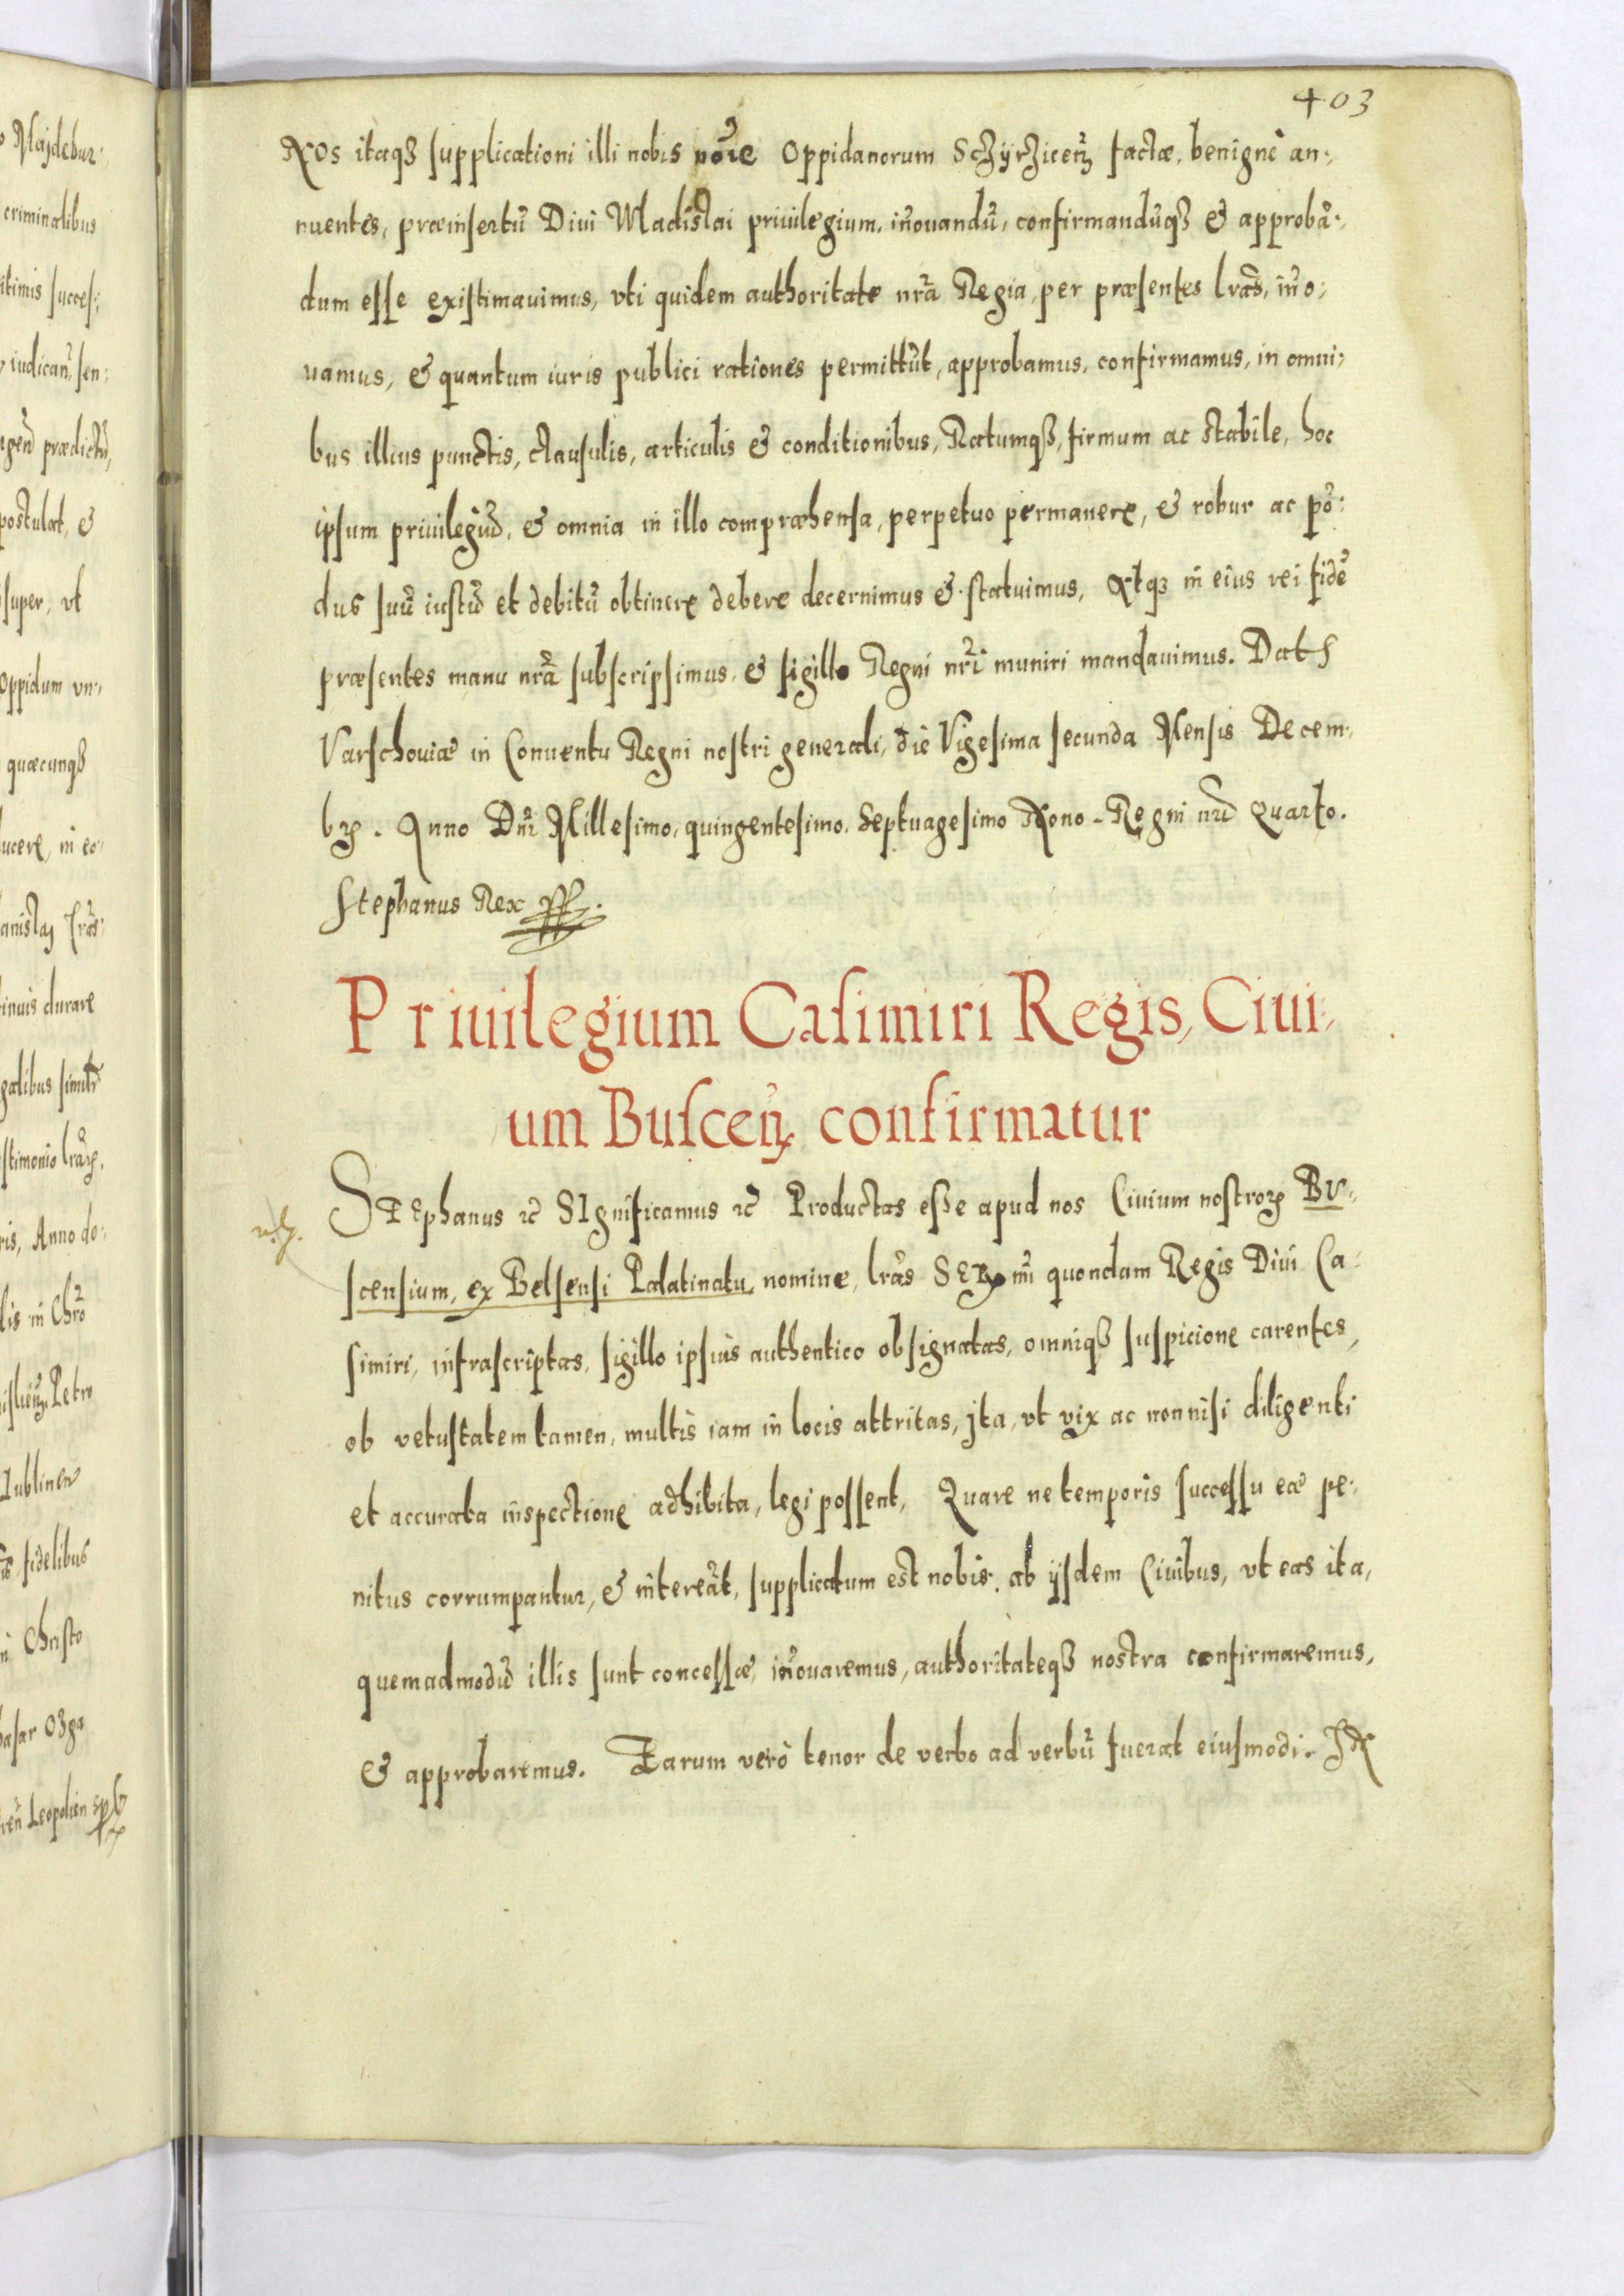 403
Nos itaqȝ supplicationi illi nobis noĩe Oppidanorum Sczyrzicen̄ factæ, benignè an-
nuentes, præinsertũ Diui Wladislai priuilegium, iñouandũ, confirmandũqȝ & approbã-
dum esse existimauimus, vti quidem authoritate nr̃a Regia, per præsentes lr̃as, iño-
uamus, & quantum iuris publici rationes permittũt, approbamus, confirmamus, in omni-
bus illius punctis, clausulis, articulis & conditionibus, Ratumqȝ, firmum ac stabile, hoc
ipsum priuilegiũ, & omnia in illo compræhensa, perpetuo permanere, & robur ac põ-
dus suũ iustũ et debitũ obtinere debere decernimus & statuimus, Atqȝ in eius rei fidẽ
præsentes manu nr̃a subscripsimus, & sigillo Regni nr̃i muniri mandauimus. Dat
Varschouiæ in Conuentu Regni nostri generali, die Vigesima secunda Mensis Decem-
bꝝ. Anno Dnĩ Millesimo, quingentesimo, Septuagesimo Nono. Regni nr̃i Quarto.
Stephanus Rex
Priuilegium Casimiri Regis, Ciui-
um Buscen̄ confirmatur
STEphanus ꝛc SIgnificamus ꝛc Productas esse apud nos Ciuium nostroꝝ Bu-
scensium, ex Belsensi Palatinatu, nomine, lr̃as SERmi quondam Regis Diui Ca-
simiri, infrascriptas, sigillo ipsius authentico obsignatas, omniqȝ suspicione carentes,
ob vetustatem tamen, multis iam in locis attritas, jta, vt vix ac non nisi diligenti
et accurata inspectione adhibita, legi possent, Quare ne temporis successu eæ pe-
nitus corrumpantur, & intereãt, supplicatum est nobis, ab ijsdem Ciuibus, vt eas ita,
quemadmodũ illis sunt concessæ, iñouaremus, authoritateqȝ nostra confirmaremus,
& approbaremus. Earum verò tenor de verbo ad verbũ fuerat eiusmodi. IN